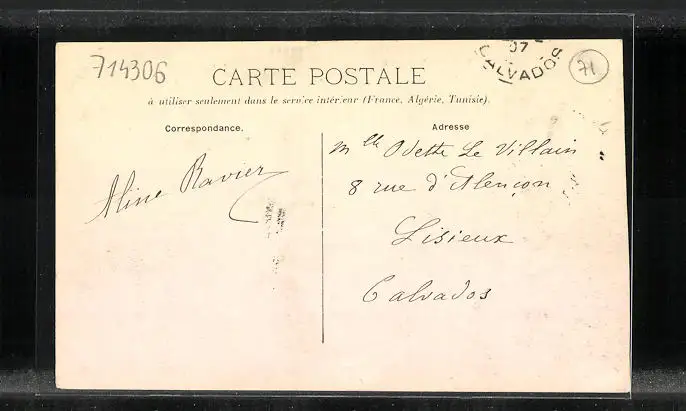 714306
07
CALVADOS
71
CARTE POSTALE
à utiliser seulement dans le service intérieur (France, Algérie, Tunisie).
Correspondance.
Adresse
Aline Ravier
Mlle Odette Le Villain
8 rue d'Alençon
Lisieux
Calvados